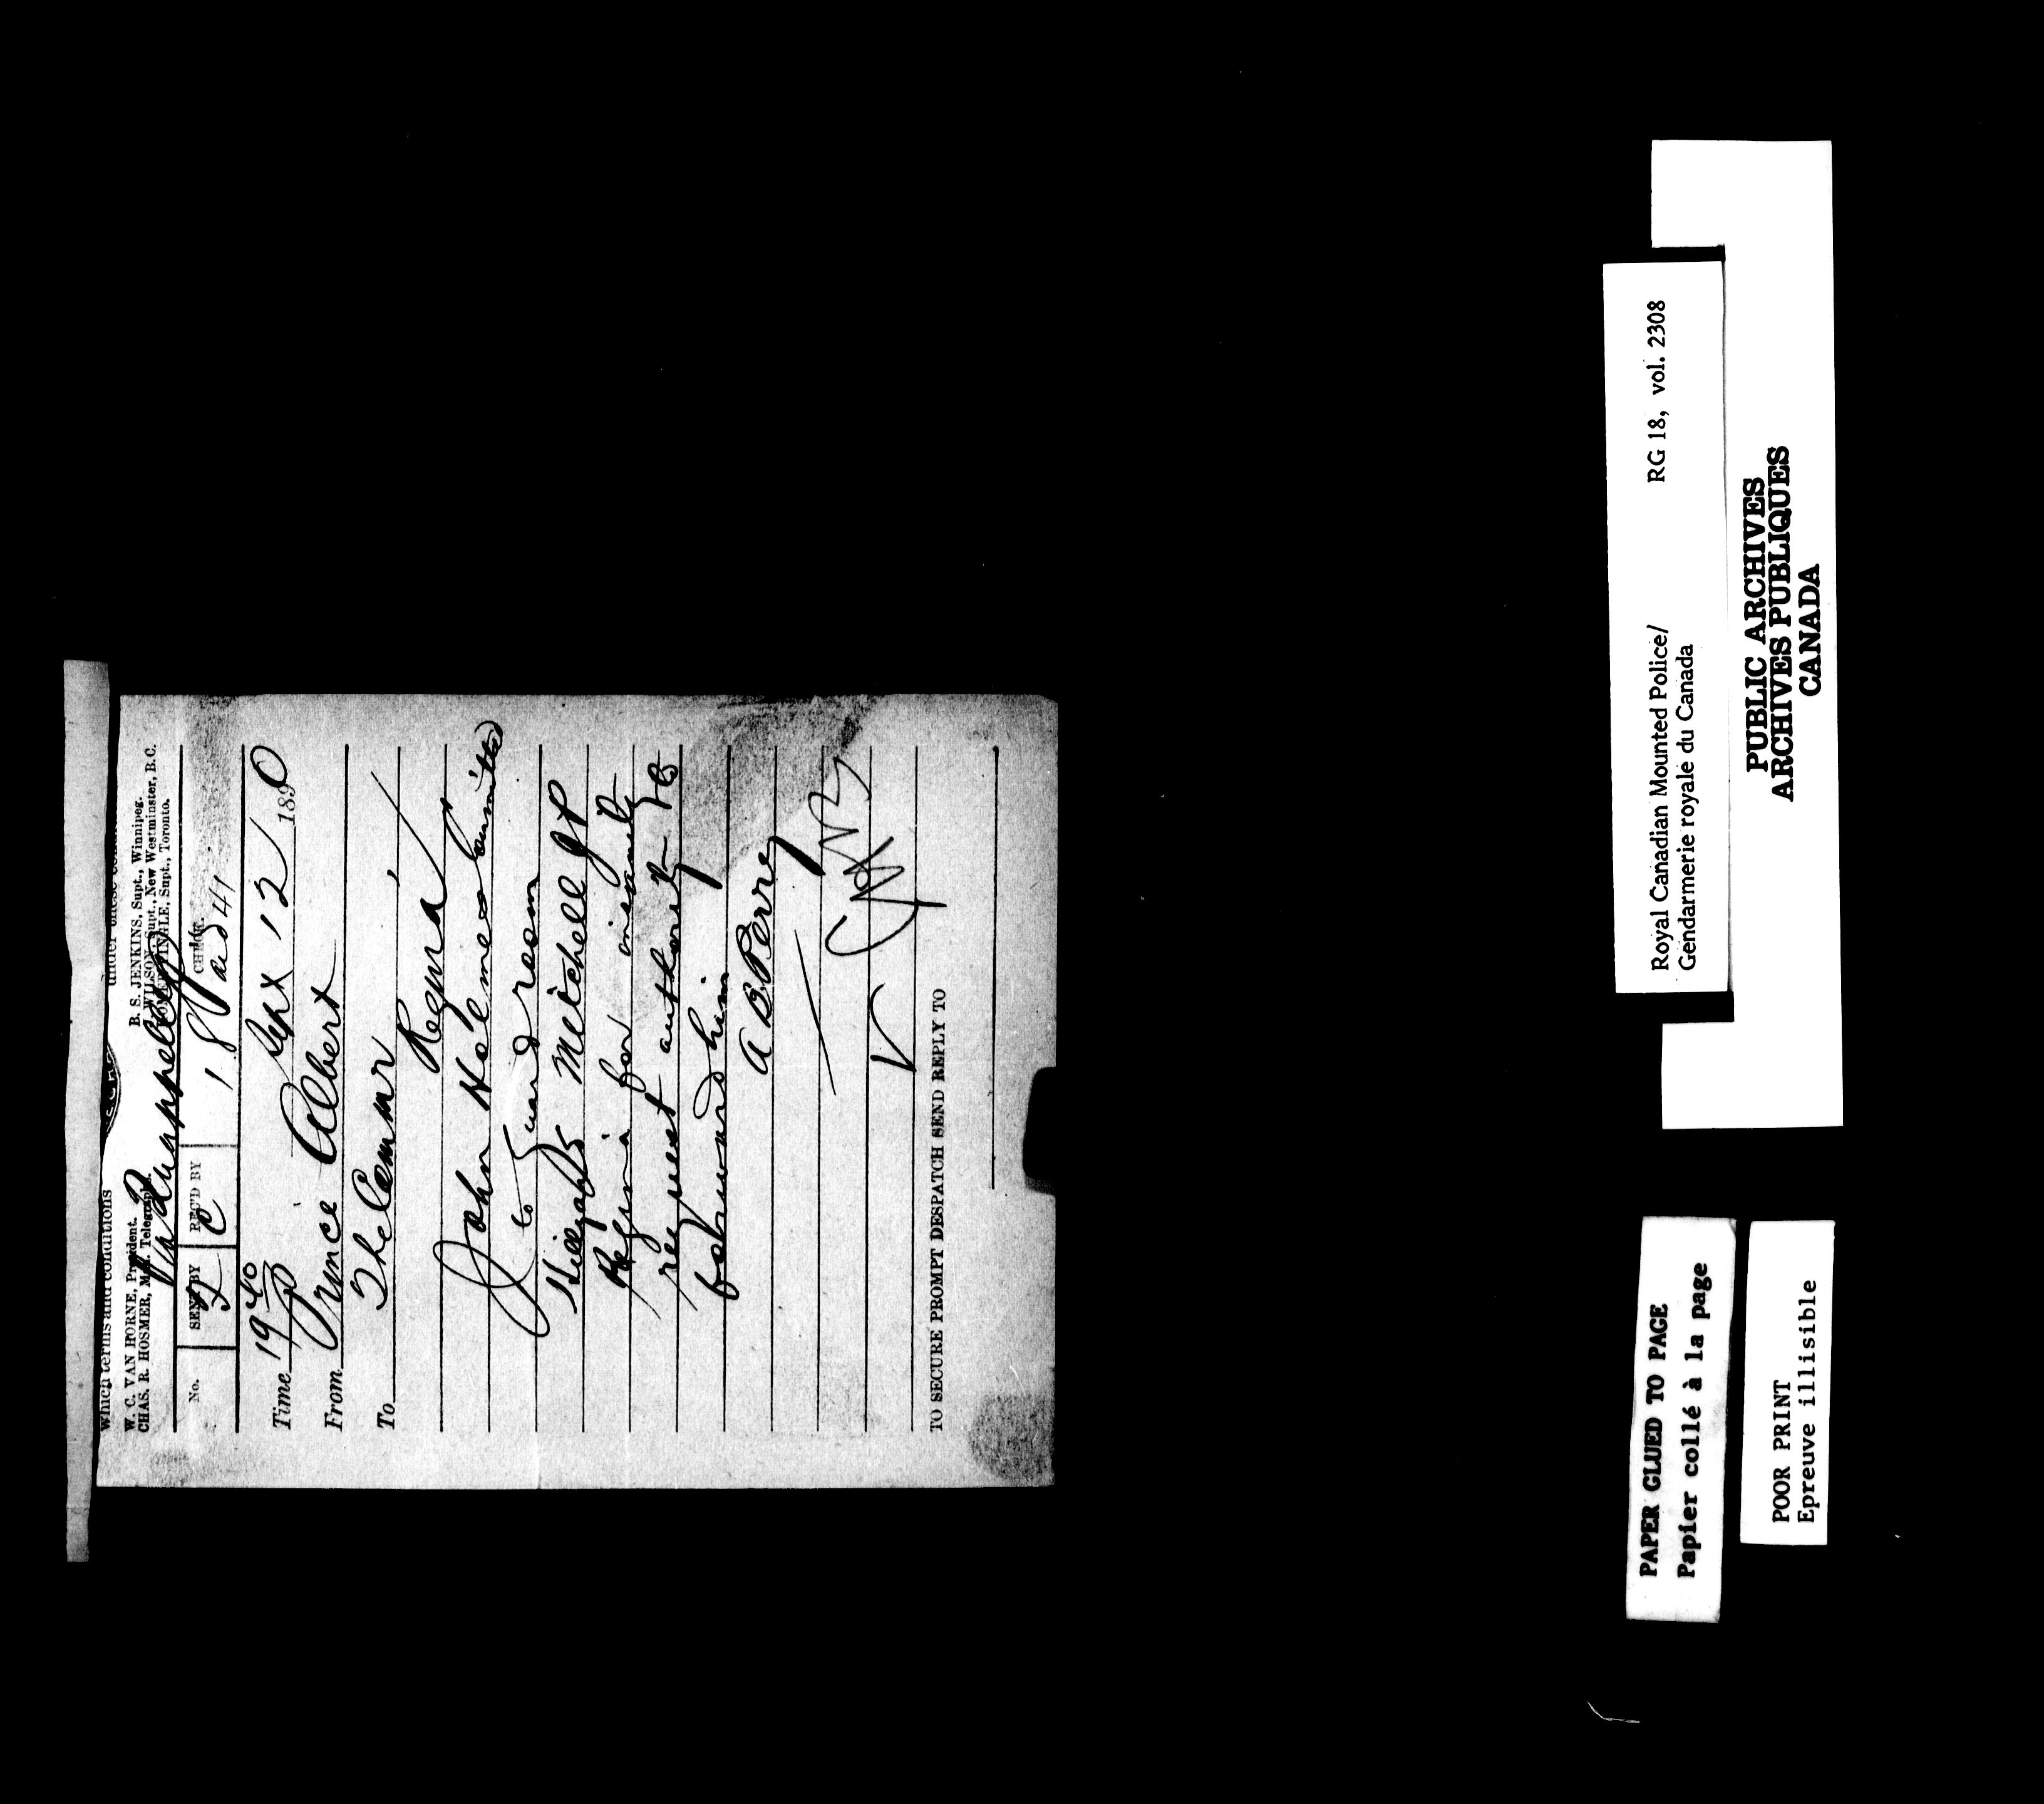 which terms and conditions
W. C. VAN HORNE, President.
B. S. JENKINS, Supt., Winnipeg.
J. WILSON, Supt., New Westminster, B.C.
CHAS. R. HOSMER, Man. Telegraphs.
HOMER PINGLE, Supt., Toronto.
No. SENT BY REC'D BY CHECK.
C 18
Time 19 40 Sept 12 1890
From Prince Albert
To The Comr
Regina
John Holmes committed
to guard room
Mitchell JP
Regina for insanity
request authority to
forward him
A B Perry
TO SECURE PROMPT DESPATCH SEND REPLY TO
Royal Canadian Mounted Police/ RG 18, vol. 2308
Gendarmerie royale du Canada
PUBLIC ARCHIVES
ARCHIVES PUBLIQUES
CANADA
PAPER GLUED TO PAGE
Papier collé à la page
POOR PRINT
Epreuve illisible